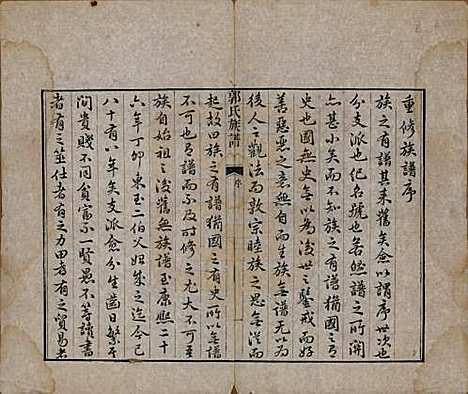 重修族譜序
族之有譜其來舊矣僉以謂序世次也
分支派也紀名號也若然譜之所關
亦甚小矣而不知族之有譜猶國之有
史也國無史無以為後世之鑒戒而好
善惡惡之意無自而生族無譜无以為
後人之觀法而敦宗睦族之思無從而
起故曰族之有譜猶國之有史所以無譜
不可也有譜而不及時修之尤大不可至
郭氏族譜
序
族自始祖之後舊無族譜至康熙二十
六年丁卯東玉二伯父始成之迄今已
八十有八年矣支派愈分生齒日繁于
間貴賤不同貧富不一賢愚不等讀書
者有之筮仕者有之力田者有之貿易者